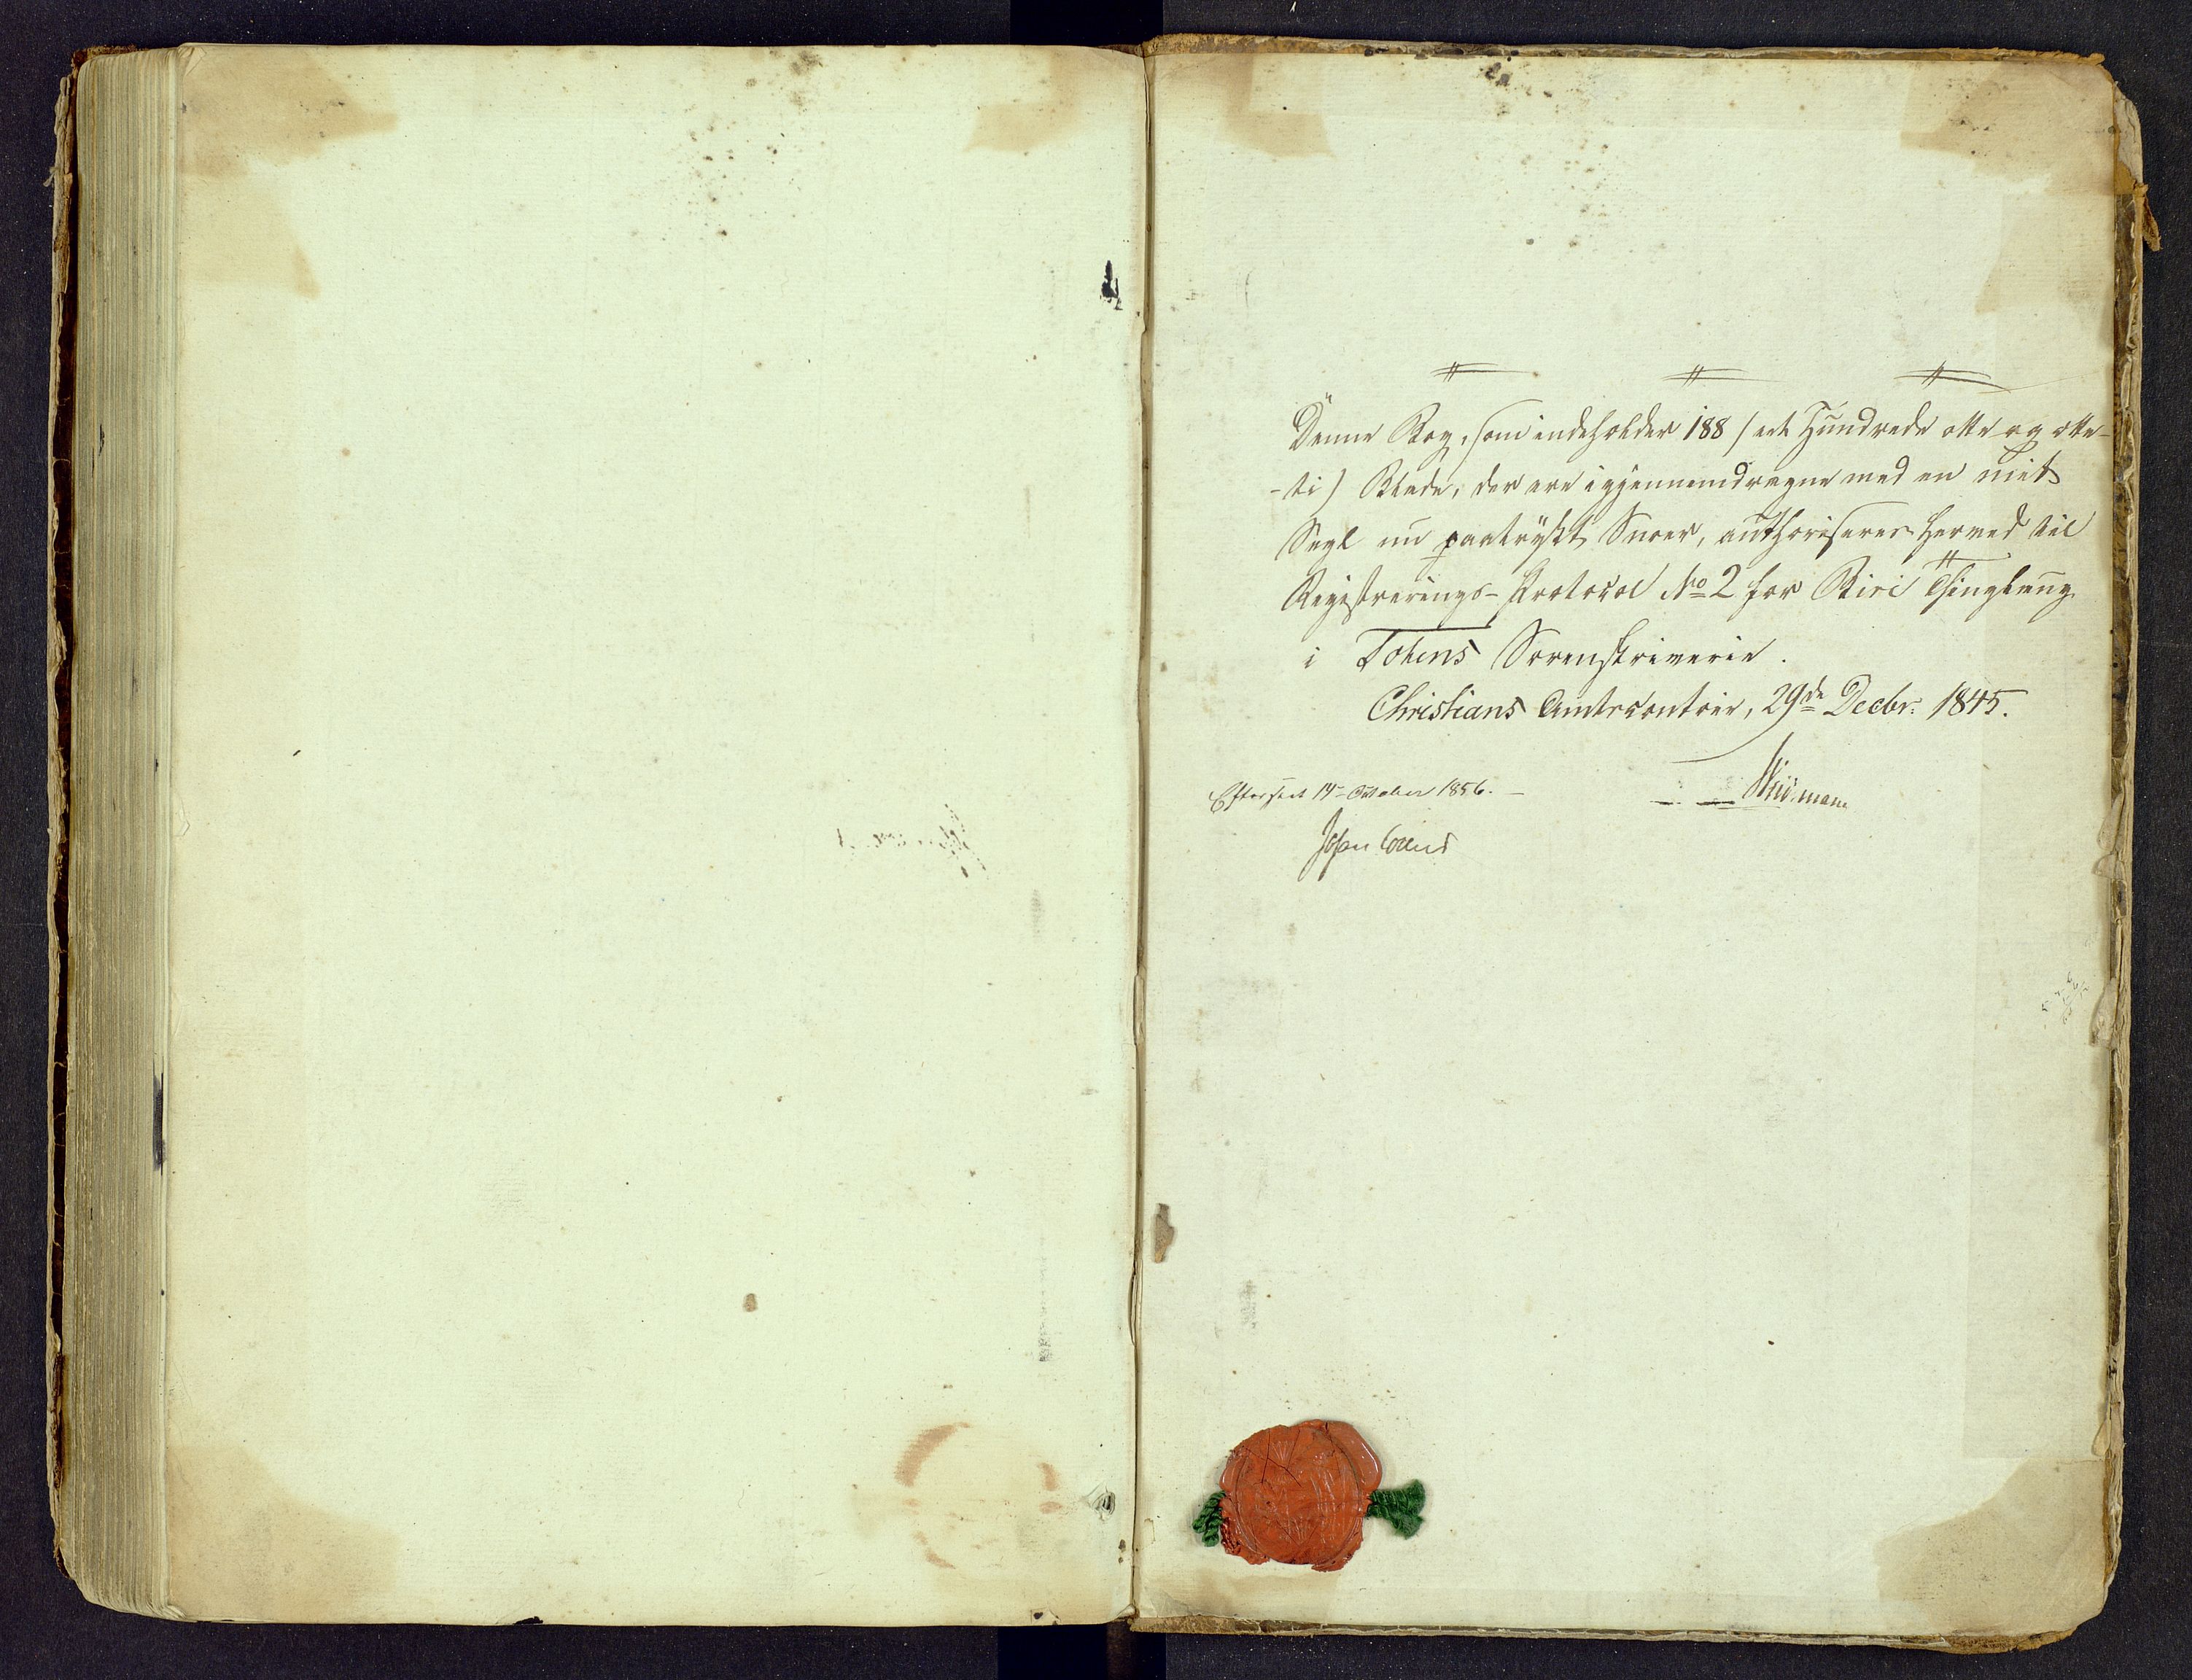 Denne Bog, som indeholder 188 / eet Hundrede otte og otte-
-ti) Blade, der ere igjennemdragne med en mit
Segl nu paatrykt Snoer, authoriseres herved til
Registrerings-Protocol No 2 for Biri Thinglaug
i Totens Sorenskriverie.
Christians Amtscontoir, 29de Decbr. 1845.
Efterseet 14de October 1856.
Johan Collett